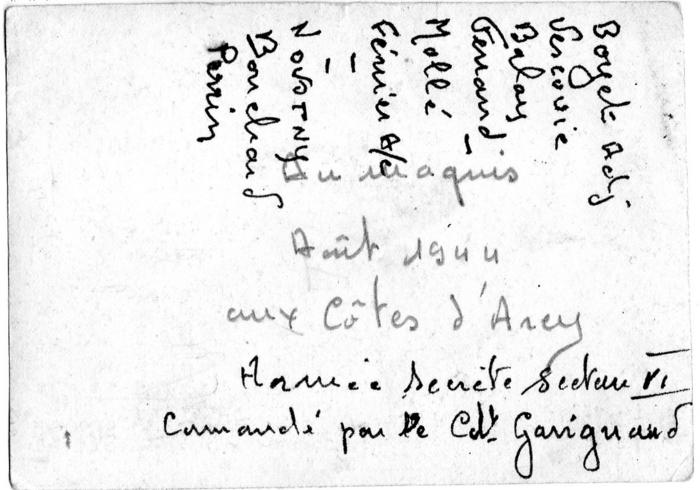 Boyet Adj
Vescovie
Balay
Fernand -
Mollé
Février A/c
-
Novotny -
Bouchard
Perrin
Au maquis
Août 1944
aux Côtes d'Arey
Armée Secrète Secteur VI
Commandé par le Cdt Garignaud